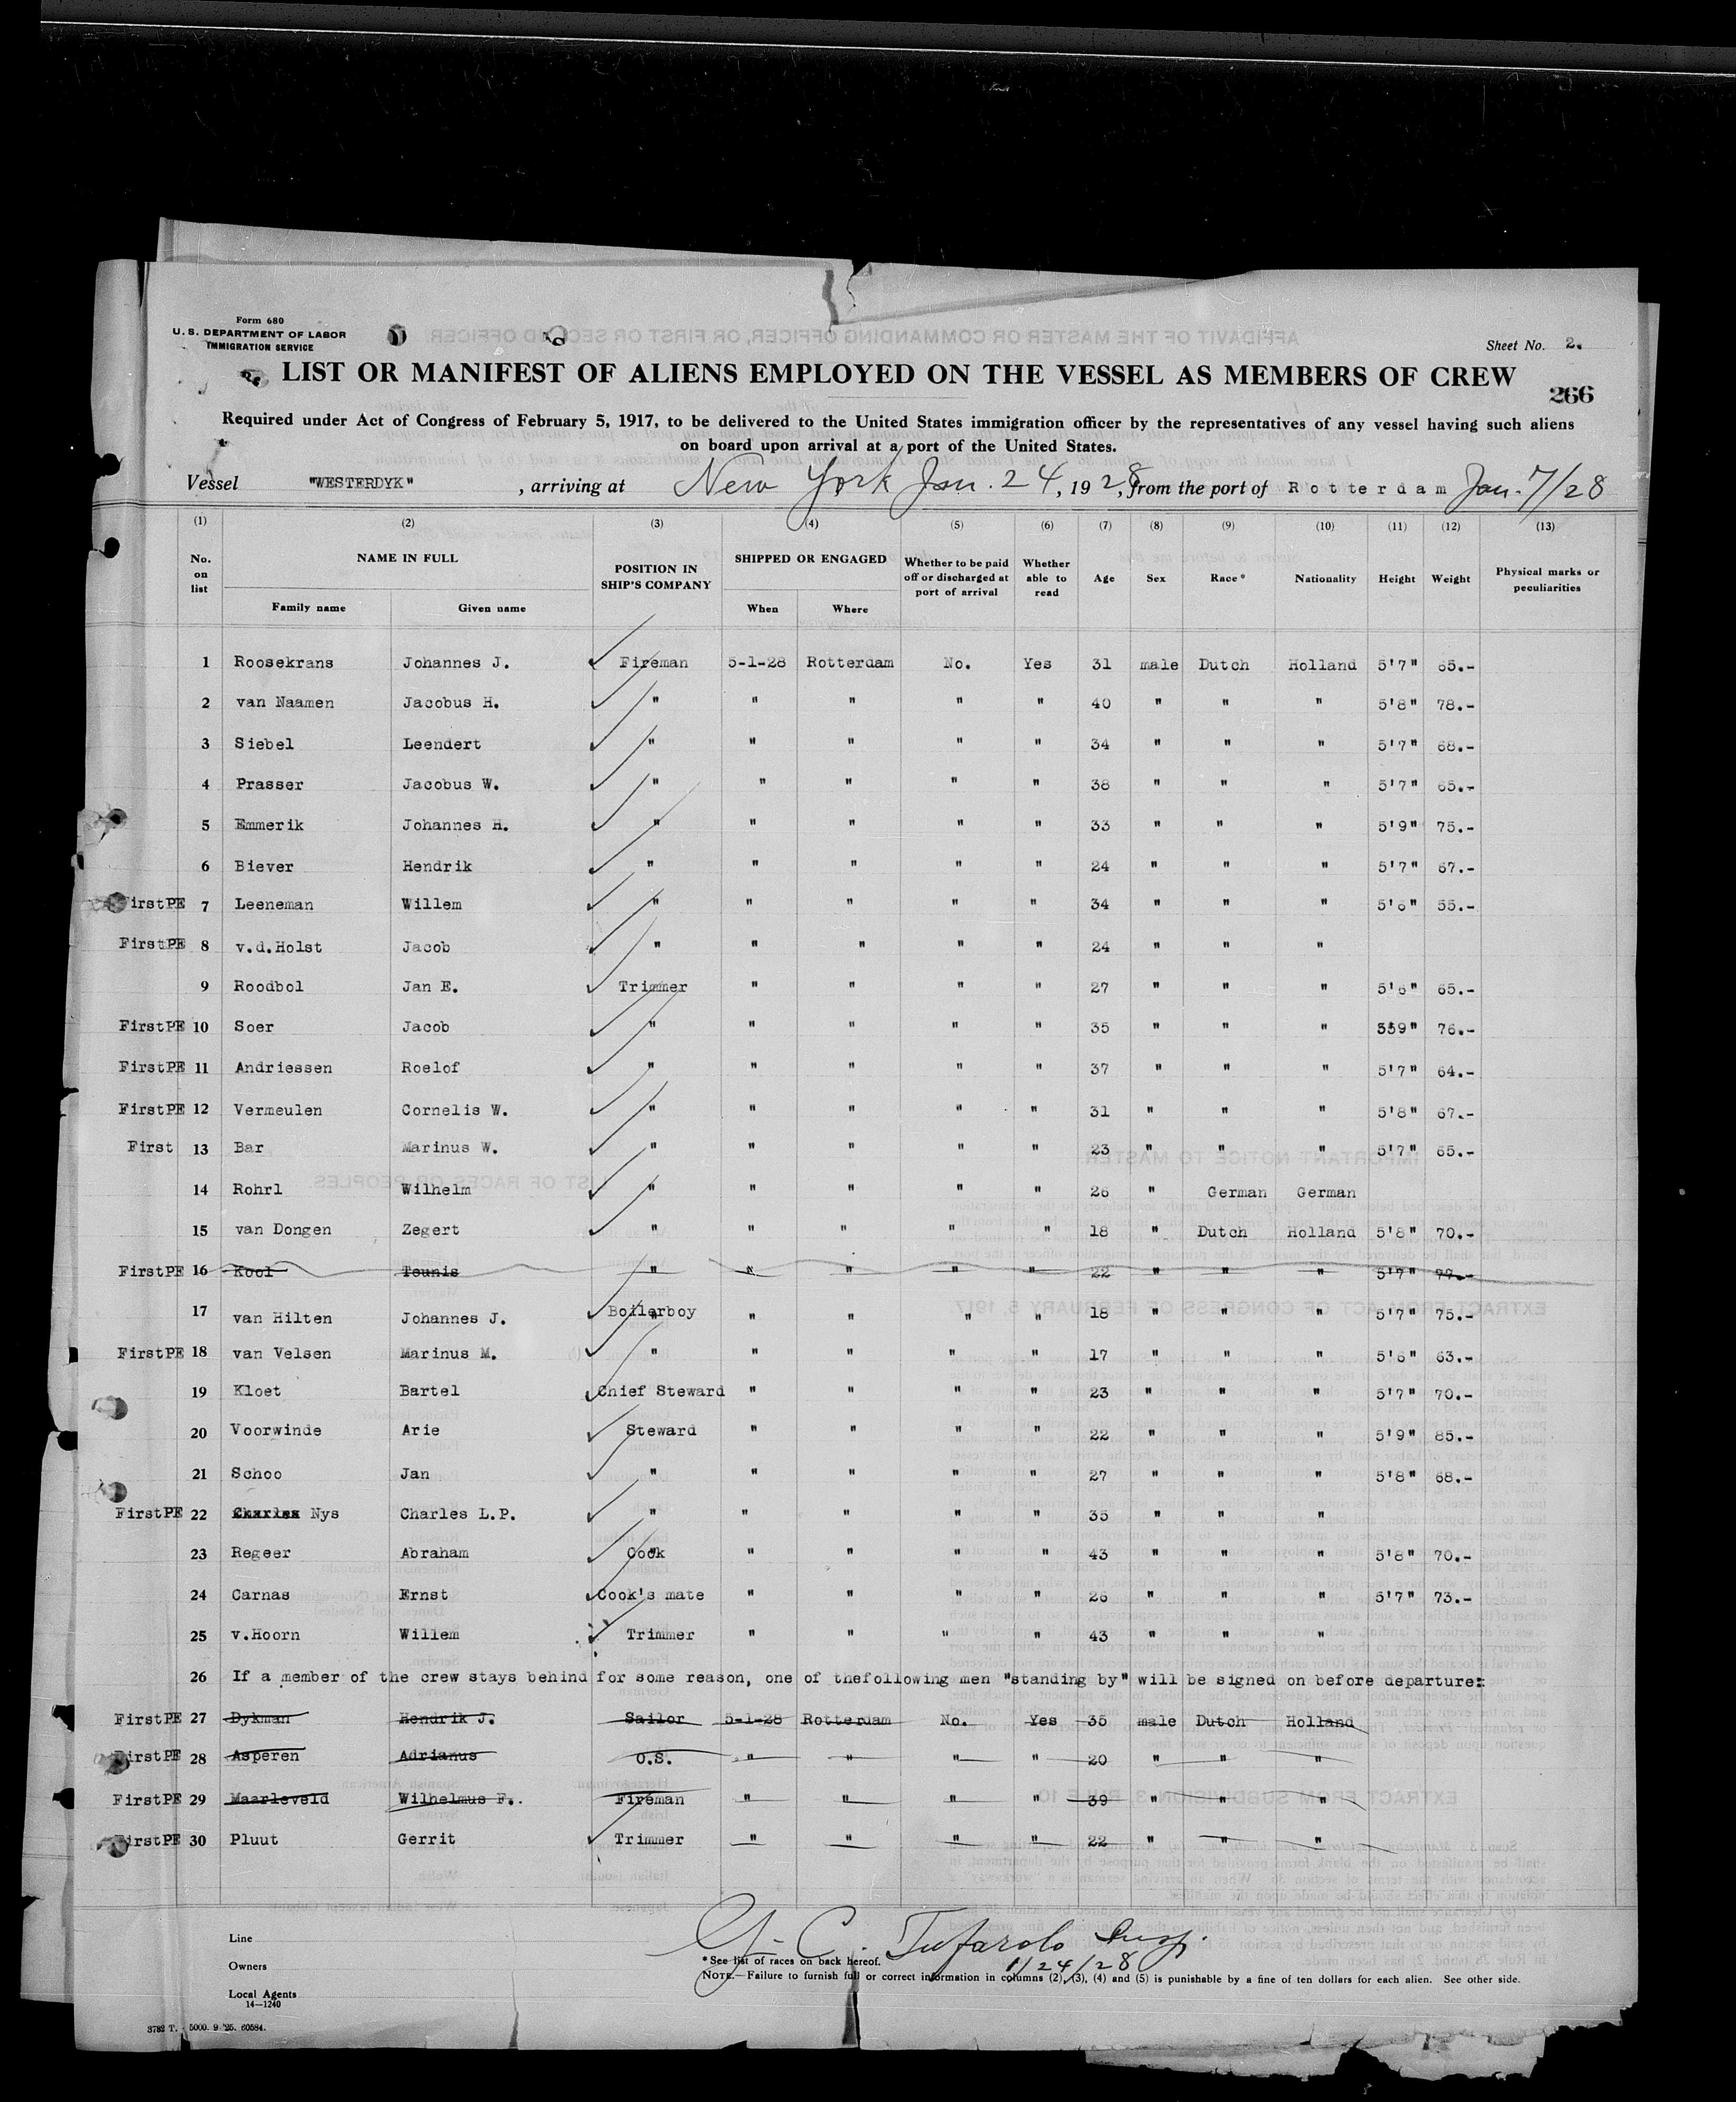 Form 680
U. S. DEPARTMENT OF LABOR
IMMIGRATION SERVICE
Sheet No. 2.
LIST OR MANIFEST OF ALIENS EMPLOYED ON THE VESSEL AS MEMBERS OF CREW
266
Required under Act of Congress of February 5, 1917, to be delivered to the United States immigration officer by the representatives of any vessel having such aliens
on board upon arrival at a port of the United States.
Vessel "WESTERDYK", arriving at New York Jan. 24, 1928, from the port of Rotterdam Jan. 7/28
(1) (2) (3) (4) (5) (6) (7) (8) (9) (10) (11) (12) (13)
No. on list NAME IN FULL POSITION IN SHIP'S COMPANY SHIPPED OR ENGAGED Whether to be paid off or discharged at port of arrival Whether able to read Age Sex Race* Nationality Height Weight Physical marks or peculiarities
Family name Given name When Where
1 Roosekrans Johannes J. Fireman 5-1-28 Rotterdam No. Yes 31 male Dutch Holland 5'7" 65.-
2 van Naamen Jacobus H. " " " " " 40 " " " 5'8" 78.-
3 Siebel Leendert " " " " " 34 " " " 5'7" 68.-
4 Prasser Jacobus W. " " " " " 38 " " " 5'7" 65.-
5 Emmerik Johannes H. " " " " " 33 " " " 5'9" 75.-
6 Biever Hendrik " " " " " 24 " " " 5'7" 67.-
FirstPE 7 Leeneman Willem " " " " " 34 " " " 5'6" 55.-
FirstPE 8 v.d.Holst Jacob " " " " " 24 " " "
9 Roodbol Jan E. Trimmer " " " " 27 " " " 5'6" 65.-
FirstPE 10 Soer Jacob " " " " " 35 " " " 5'9" 76.-
FirstPE 11 Andriessen Roelof " " " " " 37 " " " 5'7" 64.-
FirstPE 12 Vermeulen Cornelis W. " " " " " 31 " " " 5'8" 67.-
First 13 Bar Marinus W. " " " " " 23 " " " 5'7" 65.-
14 Rohrl Wilhelm " " " " " 26 " German German
15 van Dongen Zegert " " " " " 18 " Dutch Holland 5'8" 70.-
FirstPE 16 Kool Teunis " " " " " 22 " " " 5'7" 77.-
17 van Hilten Johannes J. Boilerboy " " " " 18 " " " 5'7" 75.-
FirstPE 18 van Velsen Marinus M. " " " " " 17 " " " 5'6" 63.-
19 Kloet Bartel Chief Steward " " " " 23 " " " 5'7" 70.-
20 Voorwinde Arie Steward " " " " 22 " " " 5'9" 85.-
21 Schoo Jan " " " " " 27 " " " 5'8" 68.-
FirstPE 22 Charles Nys Charles L.P. " " " " " 35 " " "
23 Regeer Abraham Cook " " " " 43 " " " 5'8" 70.-
24 Carnas Ernst Cook's mate " " " " 26 " " " 5'7" 73.-
25 v.Hoorn Willem Trimmer " " " " 43 " " "
26 If a member of the crew stays behind for some reason, one of thefollowing men "standing by" will be signed on before departure:
FirstPE 27 Dykman Hendrik J. Sailor 5-1-28 Rotterdam No. Yes 35 male Dutch Holland
FirstPE 28 Asperen Adrianus O.S. " " " " 20 " " "
FirstPE 29 Maarleveld Wilhelmus F. Fireman " " " " 39 " " "
FirstPE 30 Pluut Gerrit Trimmer " " " " 22 " " "
G. C. Tufarolo Insp.
1/24/28
Line
Owners
Local Agents
14—1240
*See list of races on back hereof.
NOTE.—Failure to furnish full or correct information in columns (2), (3), (4) and (5) is punishable by a fine of ten dollars for each alien. See other side.
3782 T. 5000. 9-'25. 60584.